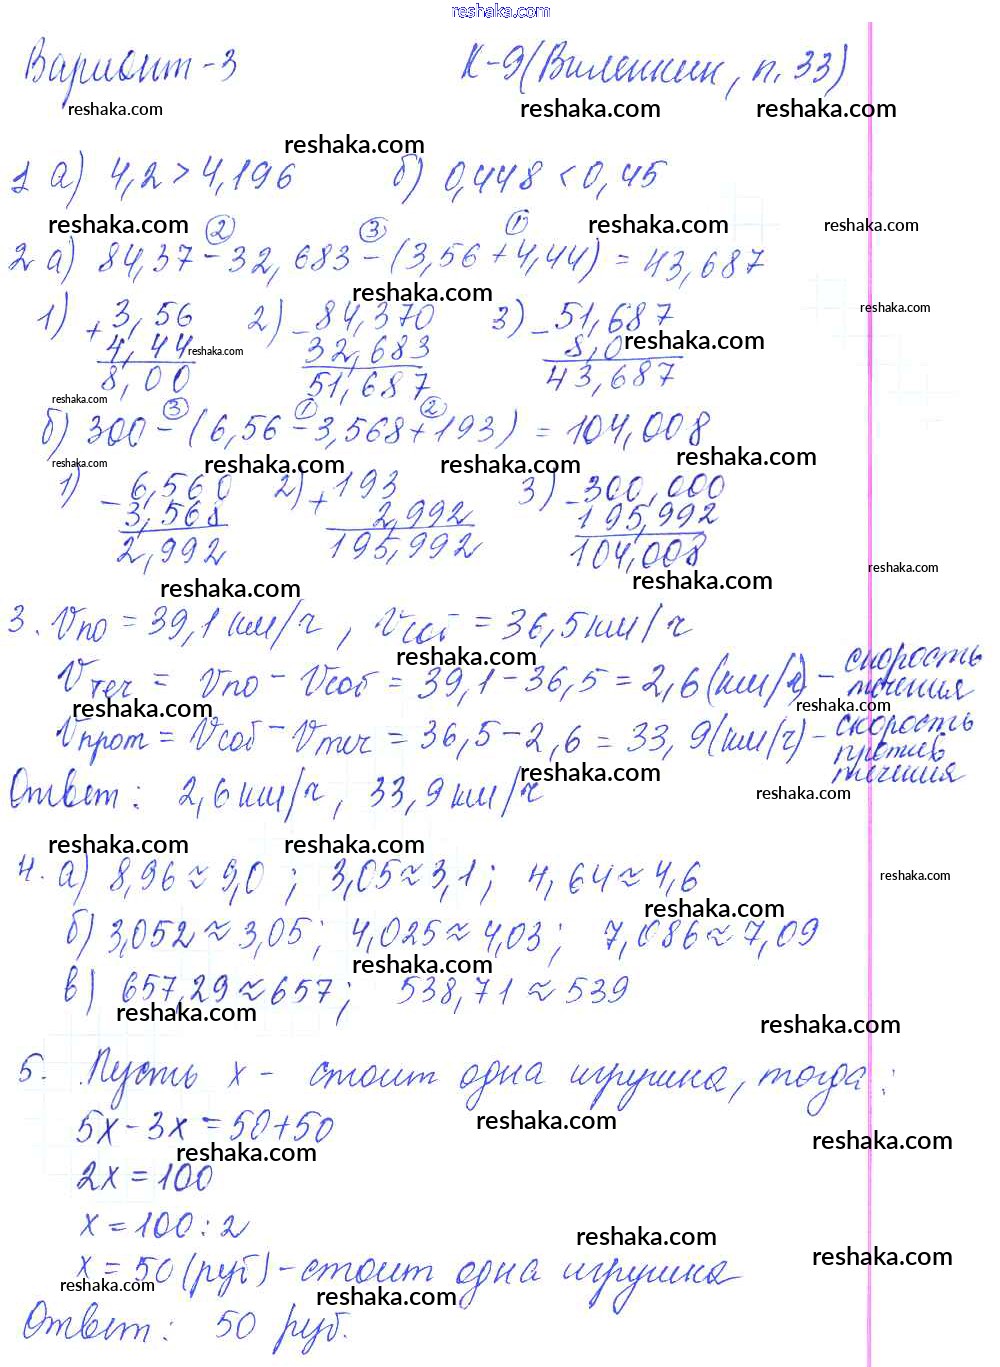 reshaka.com
Вариант-3 К-9(Виленкин, п.33)
reshaka.com reshaka.com reshaka.com
reshaka.com
1 а) 4,2 > 4,196 б) 0,448 < 0,45
reshaka.com reshaka.com reshaka.com
② ③ ①
2 а) 84,37 - 32,683 - (3,56 + 4,44) = 43,687
reshaka.com reshaka.com
1) + 3,56 2) - 84,370 3) - 51,687
4,44 32,683 8,0
reshaka.com reshaka.com
8,00 51,687 43,687
reshaka.com
③ ① ②
б) 300 - (6,56 - 3,568 + 193) = 104,008
reshaka.com reshaka.com reshaka.com reshaka.com
1) - 6,560 2) + 193 3) - 300,000
3,568 2,992 195,992
2,992 195,992 104,008
reshaka.com reshaka.com reshaka.com
3. Vпо = 39,1 км/ч, Vсоб = 36,5 км/ч
reshaka.com
Vтеч = Vпо - Vсоб = 39,1 - 36,5 = 2,6 (км/ч) - скорость течения
reshaka.com reshaka.com
Vпрот = Vсоб - Vтеч = 36,5 - 2,6 = 33,9 (км/ч) - скорость против течения
reshaka.com
Ответ: 2,6 км/ч, 33,9 км/ч
reshaka.com
reshaka.com reshaka.com
4. а) 8,96 ≈ 9,0 ; 3,05 ≈ 3,1; 4,64 ≈ 4,6
reshaka.com reshaka.com
б) 3,052 ≈ 3,05; 4,025 ≈ 4,03; 7,086 ≈ 7,09
reshaka.com
в) 657,29 ≈ 657; 538,71 ≈ 539
reshaka.com reshaka.com
5. Пусть x - стоит одна игрушка, тогда:
5x - 3x = 50 + 50
reshaka.com reshaka.com
reshaka.com
2x = 100
x = 100 : 2
reshaka.com reshaka.com
x = 50 (руб) - стоит одна игрушка
reshaka.com reshaka.com
Ответ: 50 руб.